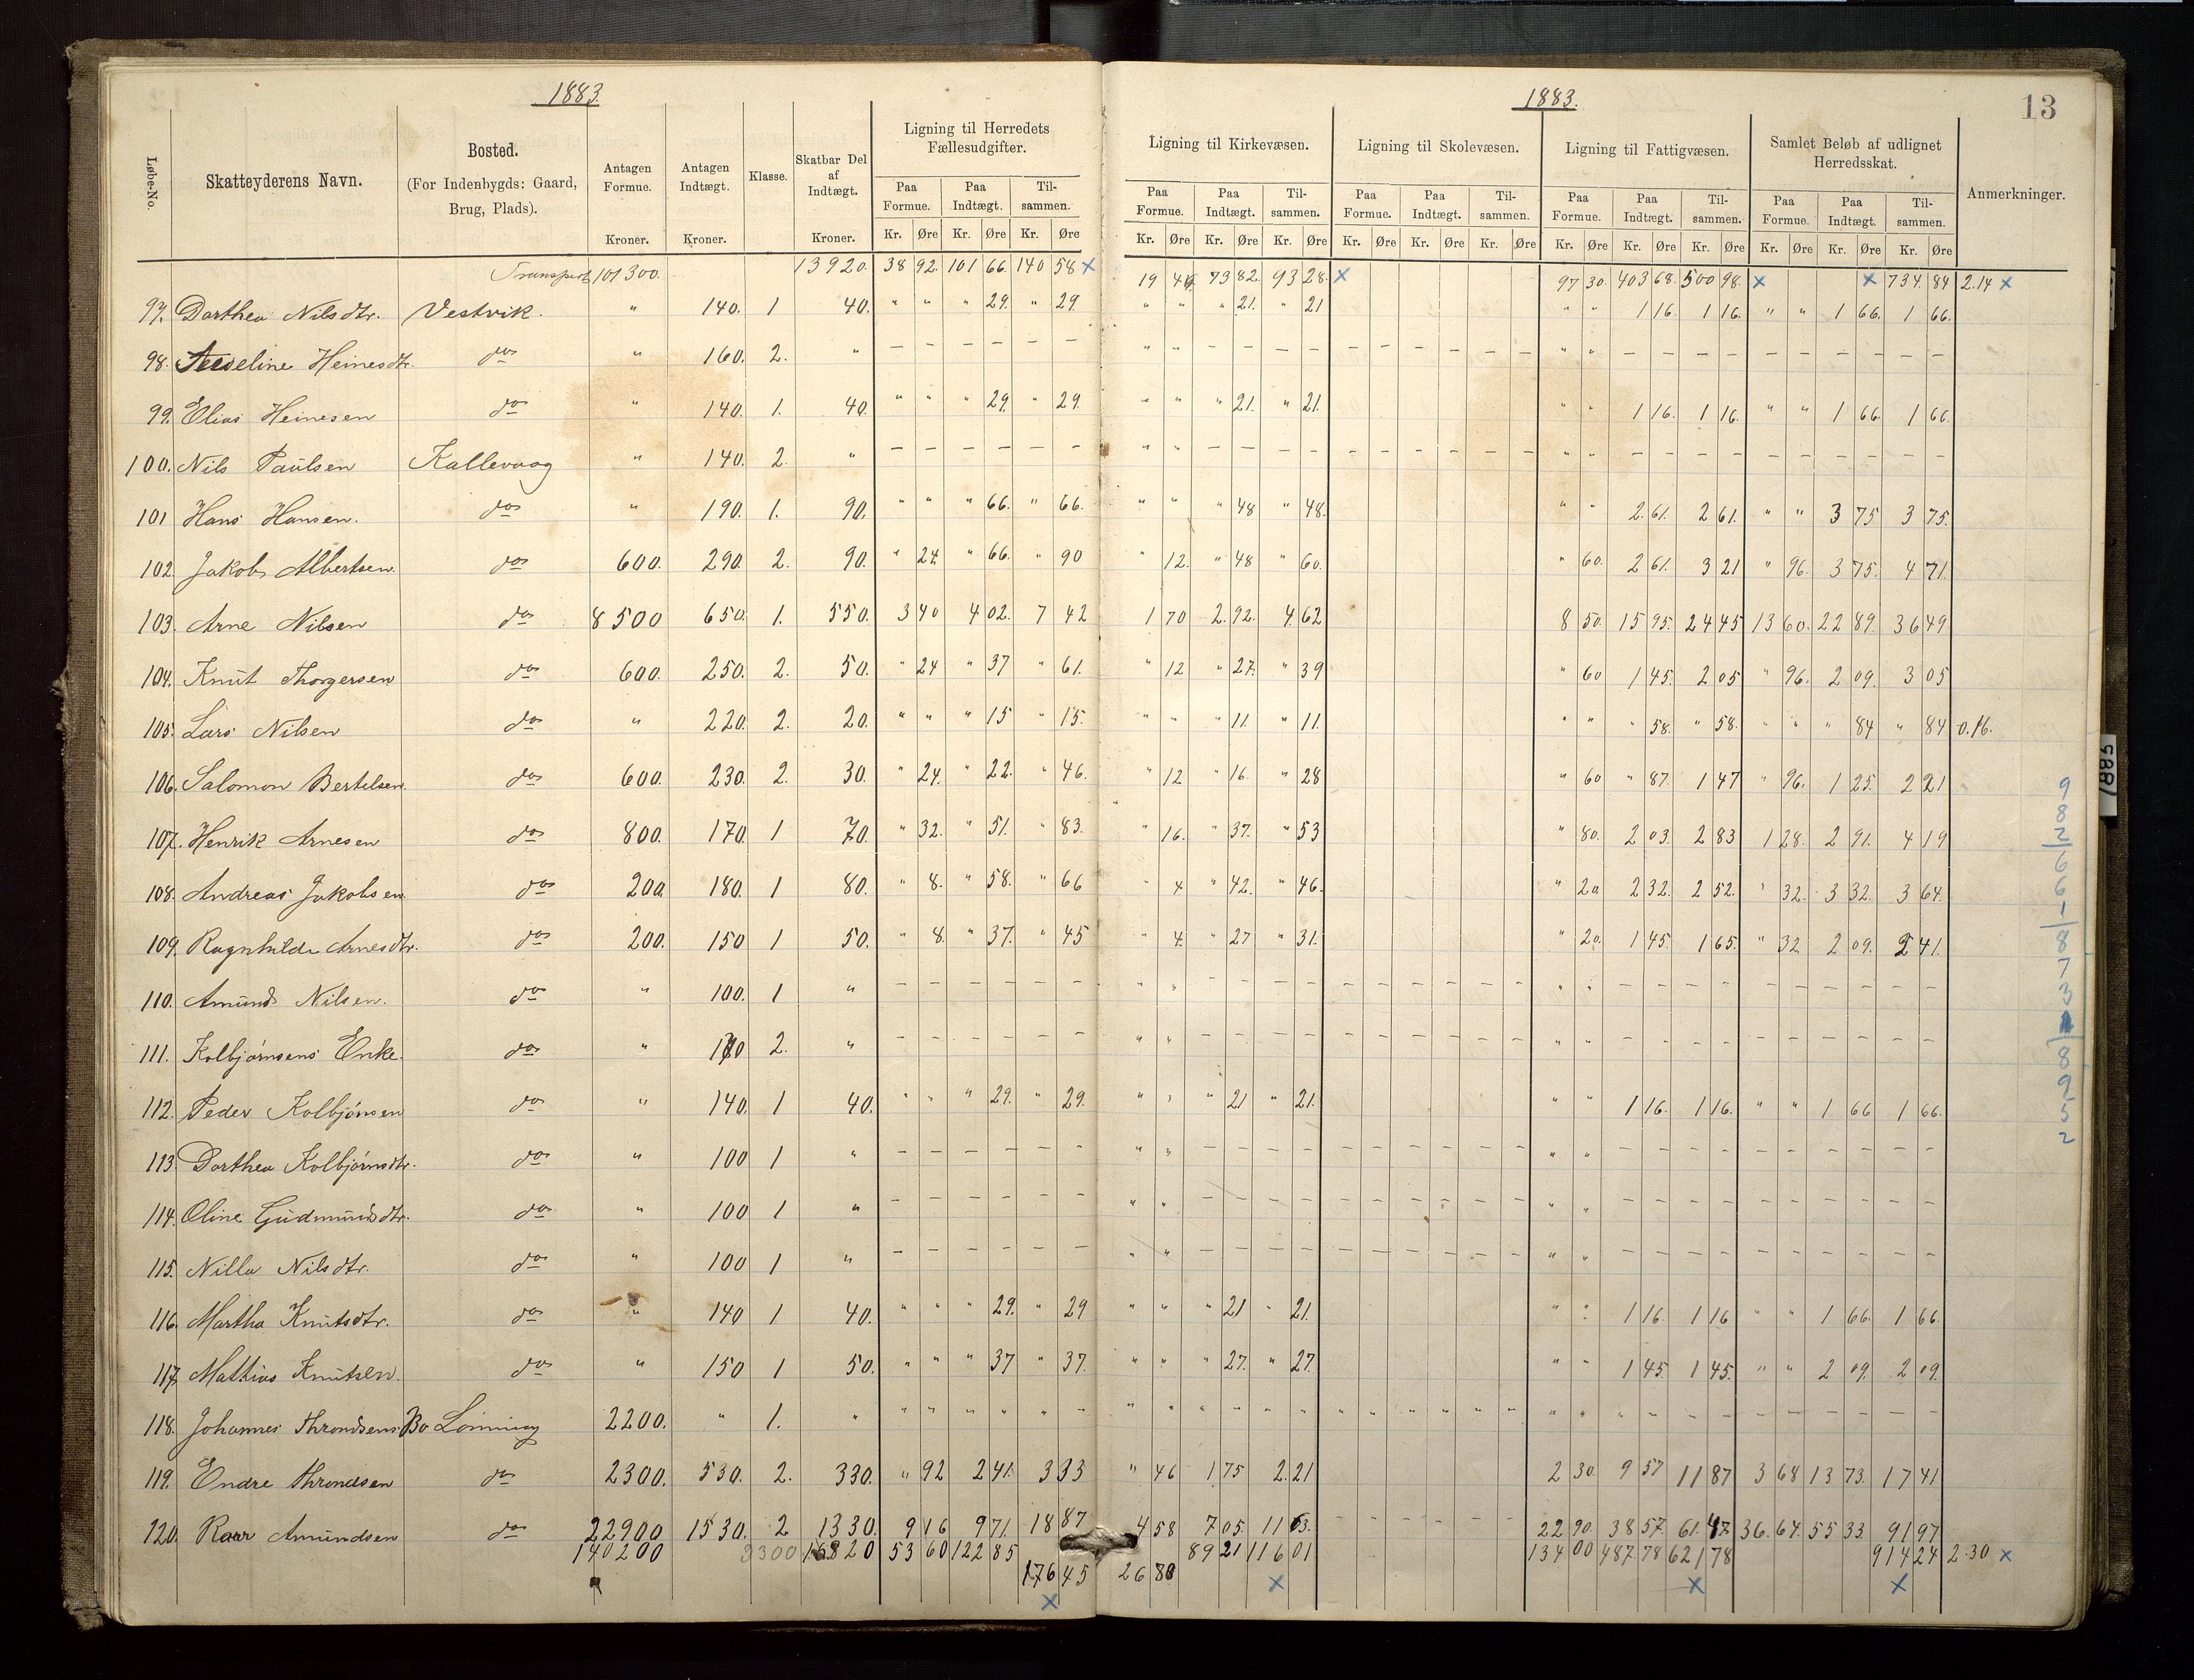 1883.
1883.
13
Løbe-No. Skatteyderens Navn. Bosted. (For Indenbygds: Gaard, Brug, Plads). Antagen Formue. Kroner. Antagen Indtægt. Kroner. Klasse. Skatbar Del af Indtægt. Kroner. Ligning til Herredets Fællesudgifter. Ligning til Kirkevæsen. Ligning til Skolevæsen. Ligning til Fattigvæsen. Samlet Beløb af udlignet Herredsskat. Anmerkninger.
Paa Formue. Paa Indtægt. Til-sammen. Paa Formue. Paa Indtægt. Til-sammen. Paa Formue. Paa Indtægt. Til-sammen. Paa Formue. Paa Indtægt. Til-sammen. Paa Formue. Paa Indtægt. Til-sammen.
Kr. Øre Kr. Øre Kr. Øre Kr. Øre Kr. Øre Kr. Øre Kr. Øre Kr. Øre Kr. Øre Kr. Øre Kr. Øre Kr. Øre Kr. Øre Kr. Øre Kr. Øre
Transport 101300. 13920. 38 92. 101 66. 140 58 x 19 46 73 82. 93 28. x 97 30. 403 68. 500 98. x x 734. 84 2.14 x
97. Dorthea Nilsdtr. Vestvik. " 140. 1 40. " " " 29. " 29 " " " 21. " 21 " " 1 16. 1 16. " " 1 66. 1 66.
98. Heinesdtr. do " 160. 2. " – – – – – – " " – – – – – – – – – – " " – – – – – – – – – –
99. Elias Heinesen do " 140. 1. 40. " " " 29. " 29. " " " 21. " 21. " " 1 16. 1 16. " " 1 66. 1 66.
100. Nils Paulsen Kallevaag " 140. 2. " – – – – – – " " – – – – – – – – – – " " – – – – – – – – – –
101 Hans Hansen. do " 190. 1. 90. " " " 66. " 66. " " " 48 " 48. " " 2. 61. 2 61. " " 3 75 3 75.
102. Jakob Albertsen. do 600. 290. 2. 90. " 24 " 66. " 90 " 12. " 48 " 60. " 60. 2 61. 3 21 " 96. 3 75. 4 71.
103. Arne Nilsen do 8500 650. 1. 550. 3 40 4 02. 7 42 1 70 2. 92. 4. 62 8 50. 15 95. 24 45 13 60. 22 89. 36 49
104. Knut Thorgersen do 600. 250. 2. 50. " 24 " 37 " 61. " 12 " 27. " 39 " 60 1 45. 2 05 " 96. 2 09. 3 05
105. Lars Nilsen do " 220. 2. 20. " " " 15 " 15. " " " 11. " 11. " " " 58. " 58. " " " 84 " 84 0.16.
106. Salomon Bertelsen. do 600. 230. 2. 30. " 24. " 22. " 46. " 12 " 16. " 28 " 60 " 87. 1 47 " 96. 1 25. 2 21
107. Henrik Arnesen do 800. 170. 1 70. " 32. " 51. " 83. " 16. " 37. " 53 " 80. 2 03. 2 83 1 28. 2 91. 4 19
108. Andreas Jakobsen. do 200. 180. 1 80. " 8. " 58. " 66 " 4 " 42. " 46. " 20 2 32. 2 52. " 32. 3 32. 3 64.
109. Ragnhilda Arnesdtr. do 200. 150 1 50. " 8. " 37. " 45 " 4. " 27 " 31. " 20. 1 45. 1 65. " 32 2 09. 2 41.
110. Amund Nilsen. do " 100. 1 " – – – – – – " " – – – – – – – – – – " " – – – – – – – – – –
111. Kolbjørnsens Enke. do " 2. " – – – – – – " " – – – – – – – – – – " " – – – – – – – – – –
112. Peder Kolbjørnsen do " 140. 1 40. " " " 29. " 29. " " " 21 " 21. " " 1 16. 1 16. " " 1 66 1 66.
113. Dorthea Kolbjørnsdtr. do " 100 1 " – – – – – – " " – – – – – – – – – – " " – – – – – – – – – –
114. Oline Gudmundsdtr. do " 100 1 " – – – – – – " " – – – – – – – – – – " " – – – – – – – – – –
115. Nilla Nilsdtr. do " 100 1 " – – – – – – " " – – – – – – – – – – " " – – – – – – – – – –
116. Martha Knutsdtr. do " 140 1 40. " " " 29. " 29 " " " 21 " 21. " " 1 16. 1 16 " " 1 66. 1 66.
117. Mathias Knutsen. do " 150 1 50. " " " 37 " 37. " " " 27. " 27. " " 1 45. 1 45. " " 2 09.2 09.
118. Johannes Throndsens Bo Lønning 2200. " 1. " " " " " " " " " " " " " " " " " " " " " – – – – – – – – – –
119. Endre Throndsen do 2300. 530. 2. 330. " 92 2 41. 3 33 " 46 1 75 2. 21 2 30. 9 57 11 87 3 68 13 73. 17 41
120. Roar Amundsen do 22900 1530. 2 1330. 9 16 9 71. 18 87 4 58 7 05. 11 63. – – – – – – 22 90. 38 57. 61. 47. 36. 64. 55 33. 91 97
140200 3300 16820 53 60 122 85 89 21 116 01 134 00 487 78 621 78 914 24 2.30 x
176 45 26 80 x x x
x
9 8 2 6 6 1 8 7 3 8 9 5 2
1885